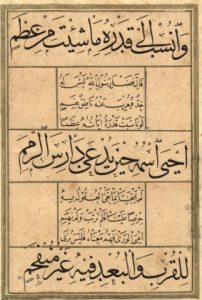 وَانْسُبْ اِلٰى قَدْرِهِ مَا شِئْتَ مِنْ عِظَمِ
فَاِنَّ فَضْلَ رَسُولِ اللهِ لَيْسَ لَهُ
حَدٌّ فَيُعْرِبَ عَنْهُ نَاطِقٌ بِفَمِ
لَوْ نَاسَبَتْ قَدْرَهُ اٰيَاتُهُ عِظَمًا
اَحْيَى اسْمُهُ حِينَ يُدْعٰى دَارِسَ الرِّمَمِ
لَمْ يَمْتَحِنَّا بِمَا تَعْيَى الْعُقُولُ بِهِ
حِرْصًا عَلَيْنَا فَلَمْ نَرْتَبْ وَلَمْ نَهِمِ
اَعْيَى الْوَرٰى فَهْمُ مَعْنَاهُ فَلَيْسَ يُرٰى
لِلْقُرْبِ وَالْبُعْدِ فِيهِ غَيْرُ مُنْفَحِمِ